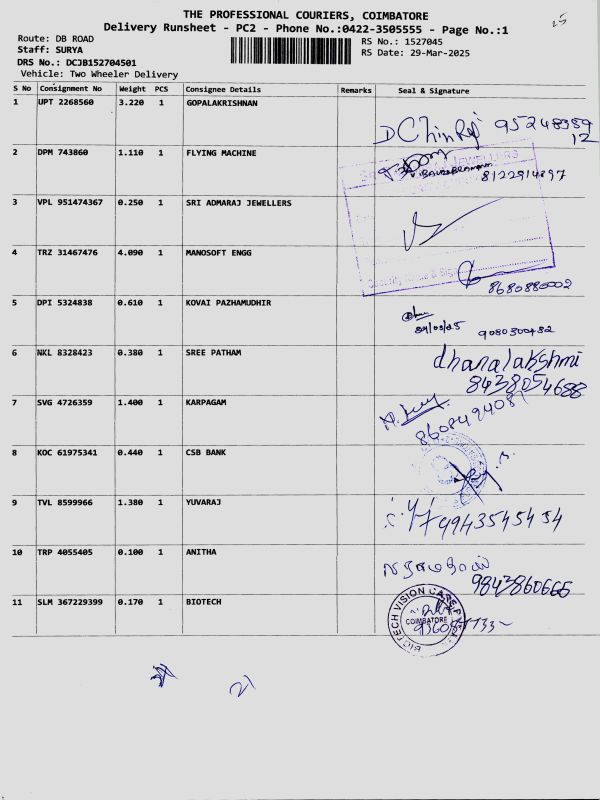 THE PROFESSIONAL COURIERS, COIMBATORE
Delivery Runsheet - PC2 - Phone No.:0422-3505555 - Page No.:1
Route: DB ROAD
Staff: SURYA
DRS No.: DCJB152704501
Vehicle: Two Wheeler Delivery
RS No.: 1527045
RS Date: 29-Mar-2025
S No Consignment No Weight PCS Consignee Details Remarks Seal & Signature
1 UPT 2268560 3.220 1 GOPALAKRISHNAN
D Chinraj 9524898912
2 DPM 743860 1.110 1 FLYING MACHINE
JEWELLERS
8122914897
3 VPL 951474367 0.250 1 SRI ADMARAJ JEWELLERS
4 TRZ 31467476 4.090 1 MANOSOFT ENGG
8680880002
5 DPI 5324838 0.610 1 KOVAI PAZHAMUDHIR
9080300432
6 NKL 8328423 0.380 1 SREE PATHAM
dhanalakshmi
8438054688
7 SVG 4726359 1.400 1 KARPAGAM
8 KOC 61975341 0.440 1 CSB BANK
9 TVL 8599966 1.380 1 YUVARAJ
9943545454
10 TRP 4055405 0.100 1 ANITHA
9843860666
11 SLM 367229399 0.170 1 BIOTECH
BIOTECH VISION CARE P
COIMBATORE